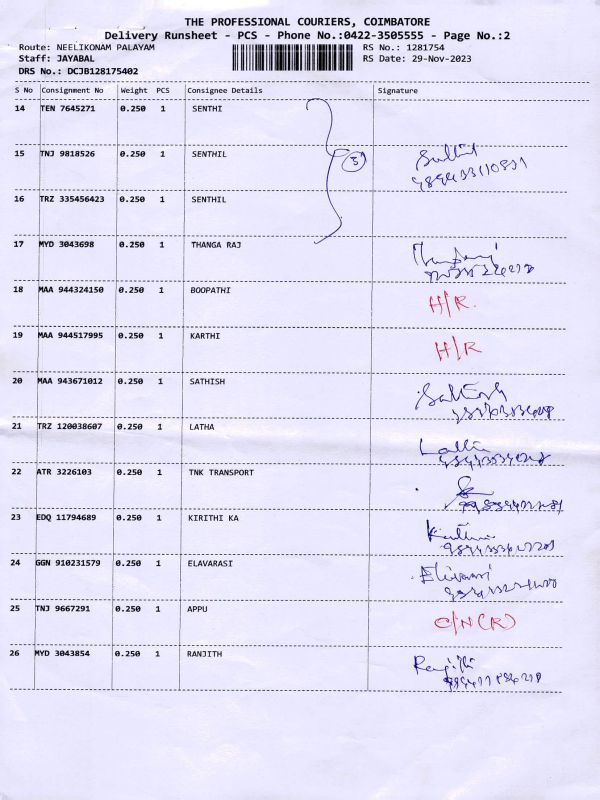 THE PROFESSIONAL COURIERS, COIMBATORE
Delivery Runsheet - PCS - Phone No.:0422-3505555 - Page No.:2
Route: NEELIKONAM PALAYAM RS No.: 1281754
Staff: JAYABAL RS Date: 29-Nov-2023
DRS No.: DCJB128175402
S No Consignment No Weight PCS Consignee Details Signature
14 TEN 7645271 0.250 1 SENTHI
15 TNJ 9818526 0.250 1 SENTHIL 3 Senthil
16 TRZ 335456423 0.250 1 SENTHIL
17 MYD 3043698 0.250 1 THANGA RAJ
18 MAA 944324150 0.250 1 BOOPATHI H/R.
19 MAA 944517995 0.250 1 KARTHI H/R
20 MAA 943671012 0.250 1 SATHISH Sathish
21 TRZ 120038607 0.250 1 LATHA Latha
22 ATR 3226103 0.250 1 TNK TRANSPORT
23 EDQ 11794689 0.250 1 KIRITHI KA
24 GGN 910231579 0.250 1 ELAVARASI
25 TNJ 9667291 0.250 1 APPU C/N (R)
26 MYD 3043854 0.250 1 RANJITH Ranjith